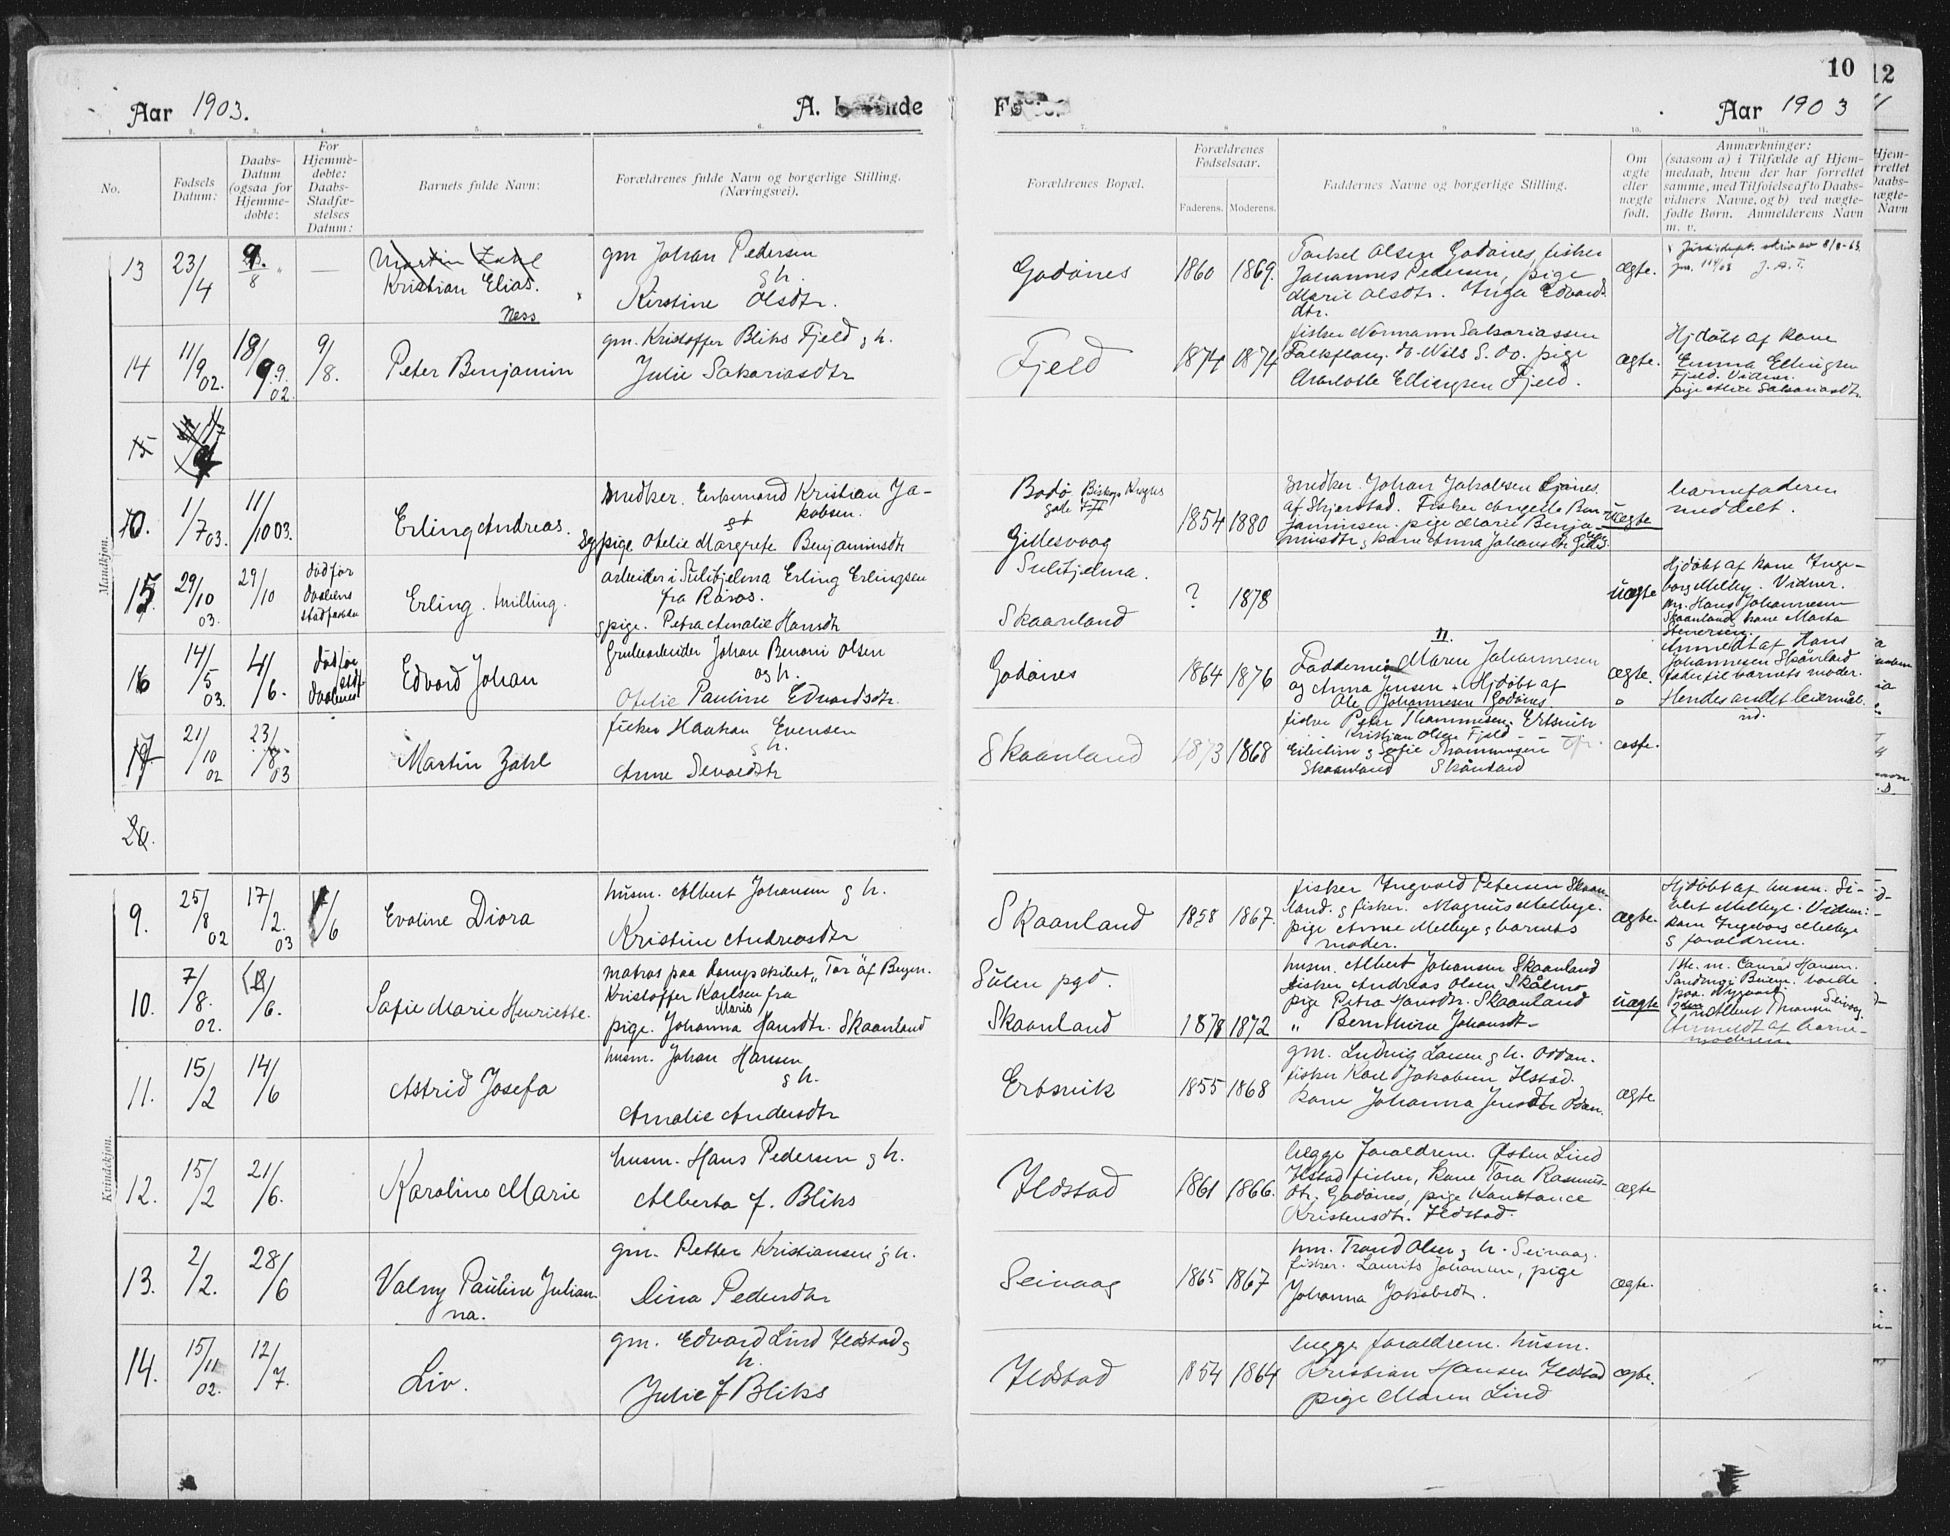 10
12
Aar 1903.
A.
Aar 1903
No.
Fødsels Datum:
Daabs-Datum (ogsaa for Hjemme-døbte:
For Hjemme-døbte: Daabs-Stadfæ-stelses Datum:
Barnets fulde Navn:
Forældrenes fulde Navn og borgerlige Stilling. (Næringsvei).
Forældrenes Bopæl.
Forældrenes Fødselsaar.
Faderens.
Moderens.
Faddernes Navne og borgerlige Stilling.
Om ægte eller uægte født.
Anmærkninger: (saasom a) i Tilfælde af Hjem-medaab, hvem der har forrettet samme, med Tilføielse af to Daabs-vidners Navne, og b) ved uægte-fødte Børn. Anmelderens Navn m. v.
Mandkjøn.
13
23/4
9. 8
Martin Zahl
Kristian Elias.
Ness
gm Johan Pedersen
g h.
Kirstine Olsdtr.
Godønes
1860
1869.
Torkel Olsen Godønes, fisker
Johannes Pedersen, pige
Marit Olsdtr. Inga Edvards
dtr.
ægte.
14
11/9 02.
9/8.
Peter Benjamin
gm. Kristoffer Bliks Fjeld g h.
Julie Sakariasdtr
Fjeld
1874
1874
fisker Normann Sakariassen
pige
Charlotte Ellingsen Fjeld.
ægte.
Hjdøbt af kone
Emma Ellingsen
Fjeld. Vidner.
15
1/7 03.
11/10 03.
Erling Andreas.
Kristian Ja-
kobsen.
pige Ofelie Margrete Benjaminsdtr
Bodø
Gillesvaag
1854
1880
snedker. Johan Jakobsen
af Skjerstad. Fisker Angelle Ben-
jaminsen. pige Marie Benja-
minsdtr g kone Anna Johansdtr
uægte
barnefaderen
meddelt.
15
29/10 03.
29/10
død før
daabens
stadfæstelse
Erling. tvilling.
arbeider i Sulitjelma Erling Erlingsen
fra Røros.
g pige. Petra Amalie Hansdtr
Sulitjelma.
Skaanland
?
1878
uægte
Hjdøbt af kone Inge-
borg Melby. Vidner.
gm. Hans Johannesen
Skaanland, kone Marta
16
14/5 03.
4/6.
død før
Edvard Johan
Grubearbeider Johan Benoni Olsen
og h.
Ofelie Pauline Edvardsdtr.
Godønes
1864
1876
Fadderne: Maren Johannesen
og Anna Jensen. Hjdøbt af
Ole Johannesen Godønes
ægte.
Anmeldt af Hans
Johannesen Skånland
fader til barnets moder.
Hendes andet leiermål.
17
21/10 02
23/8 03
Martin Zahl
fisker Haakon Evensen
g h.
Anne Sevaldstr
Skaanland
1873
1868
fisker Peter Thommesen. Ertsvik
Kristian Olsen Fjeld
Skaanland Skånland
20.
Kvindekjøn.
9.
25/8 02
17/2. 03
Evoline Diora
husm. Albert Johansen g h.
Kristine Andreasdtr
Skaanland
1858
1867.
fisker Ingvald Petersen Skaan-
land. g fisker. Magnus Melbye.
pige Anne Melbye g barnets
moder.
ægte.
Hjdøbt af husm. Si-
vert Melbye. Vidner:
kone Ingeborg Melbye
g forældrene.
10.
7/8. 02.
Sofie Marie Henriette.
matros paa dampskibet "Tor" af Bergen.
Kristoffer Karlsen fra
pige. Johanna Marie Hansdtr. Skaanland
Sulen pgd.
Skaanland
1878
1872
husm. Albert Johansen Skaanland
fisker Andreas Olsen Skålmo
pige Petra Hansdtr. Skaanland
" Bernthine Johansdtr
uægte
Anmeldt af barne-
moderen
11.
15/2
14/6
Astrid Josefa
husm. Johan Hansen
g h.
Amalie Andersdtr
Ertsvik
1855
1868
gm. Ludvig Larsen g h. Oddan.
fisker Karl Jakobsen Ilstad.
kone Johanna Jensdtr Oddan.
ægte
12.
15/2
21/6.
Karoline Marie
husm. Hans Pedersen g h.
Alberta f. Bliks
Ildstad
1861
1866.
begge forældrene. Østen Lind
Ildstad fisker, kone Tora Rasmus-
dtr. Godønes, pige Konstance
Kristensdtr. Ildstad.
ægte
13.
2/2.
28/6
Valny Pauline Julian-
na.
gm. Petter Kristiansen g h.
Dina Pedersdtr
Seivaag
1865
1867
hm. Trond Olsen g h. Seivaag.
fisker. Laurits Johansen, pige
Johanna Jakobsdtr.
ægte.
14.
15/11 02.
12/7.
Liv.
gm. Edvard Lind Ildstad g
h.
Julie f Bliks
Ildstad
1854
1864
begge forældrene. husm.
Kristian Hansen Ildstad
pige Maren Lind
ægte.